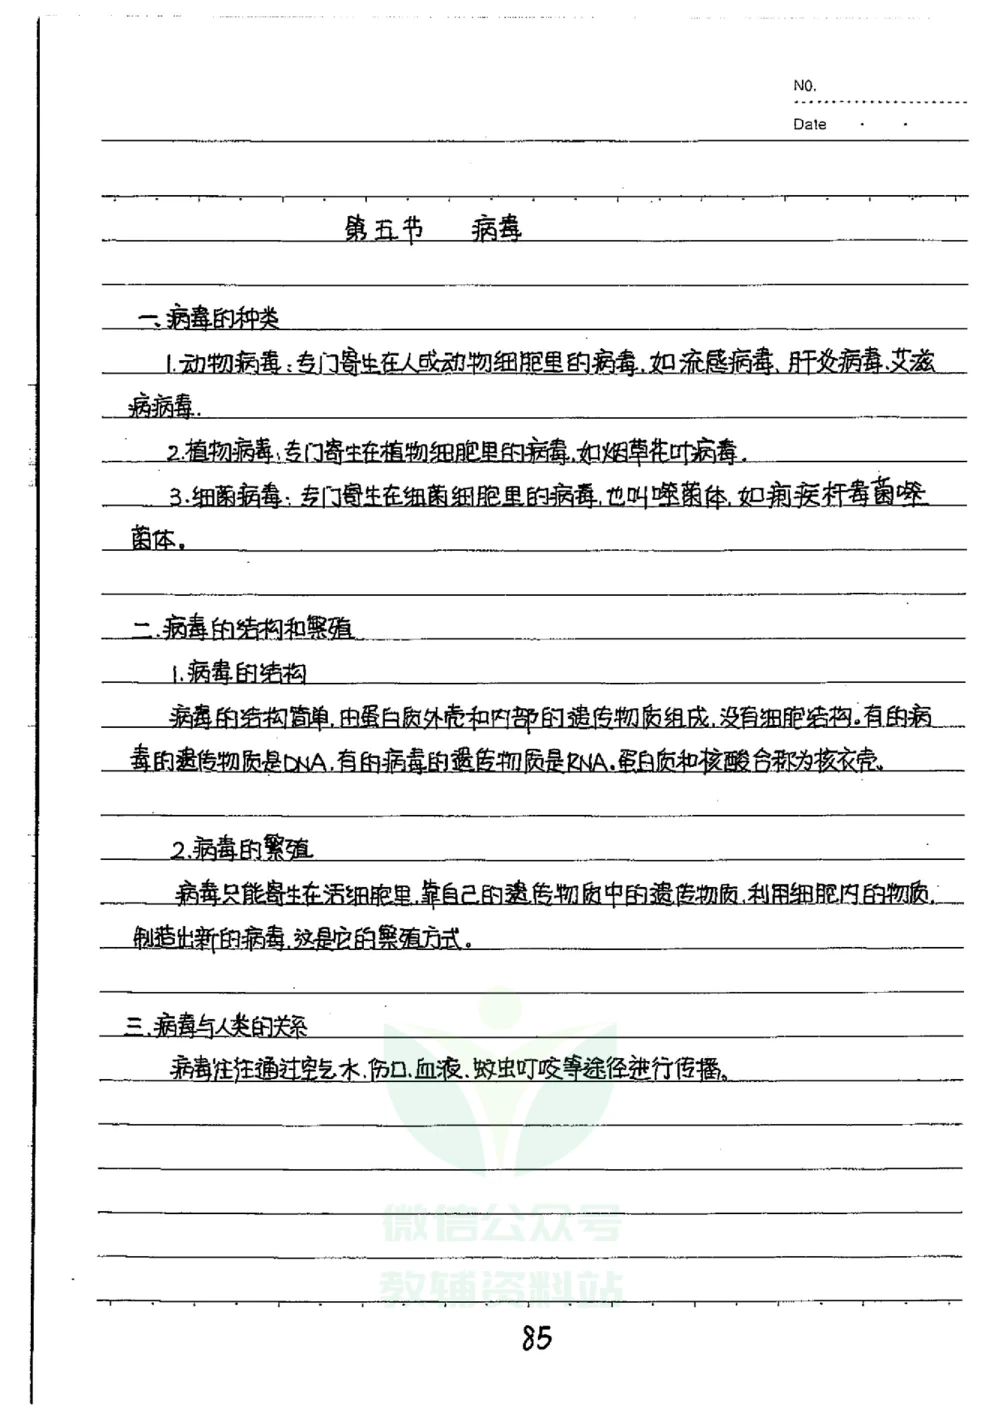 NO.
Date
第五节 病毒
一、病毒的种类
1.动物病毒:专门寄生在人或动物细胞里的病毒.如流感病毒、肝炎病毒.艾滋
病病毒.
2.植物病毒:专门寄生在植物细胞里的病毒.如烟草花叶病毒.
3.细菌病毒:专门寄生在细菌细胞里的病毒,也叫噬菌体,如痢疾杆毒菌噬
菌体。
二.病毒的结构和繁殖
1.病毒的结构
病毒的结构简单,由蛋白质外壳和内部的遗传物质组成,没有细胞结构。有的病
毒的遗传物质是DNA,有的病毒的遗传物质是RNA。蛋白质和核酸合称为核衣壳。
2.病毒的繁殖
病毒只能寄生在活细胞里,靠自己的遗传物质中的遗传物质,利用细胞内的物质,
制造出新的病毒,这是它的繁殖方式。
三.病毒与人类的关系
病毒往往通过空气水.伤口.血液、蚊虫叮咬等途径进行传播。
微信公众号
教辅资料站
85